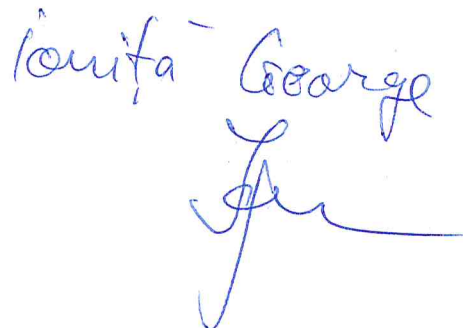 Ioniță George